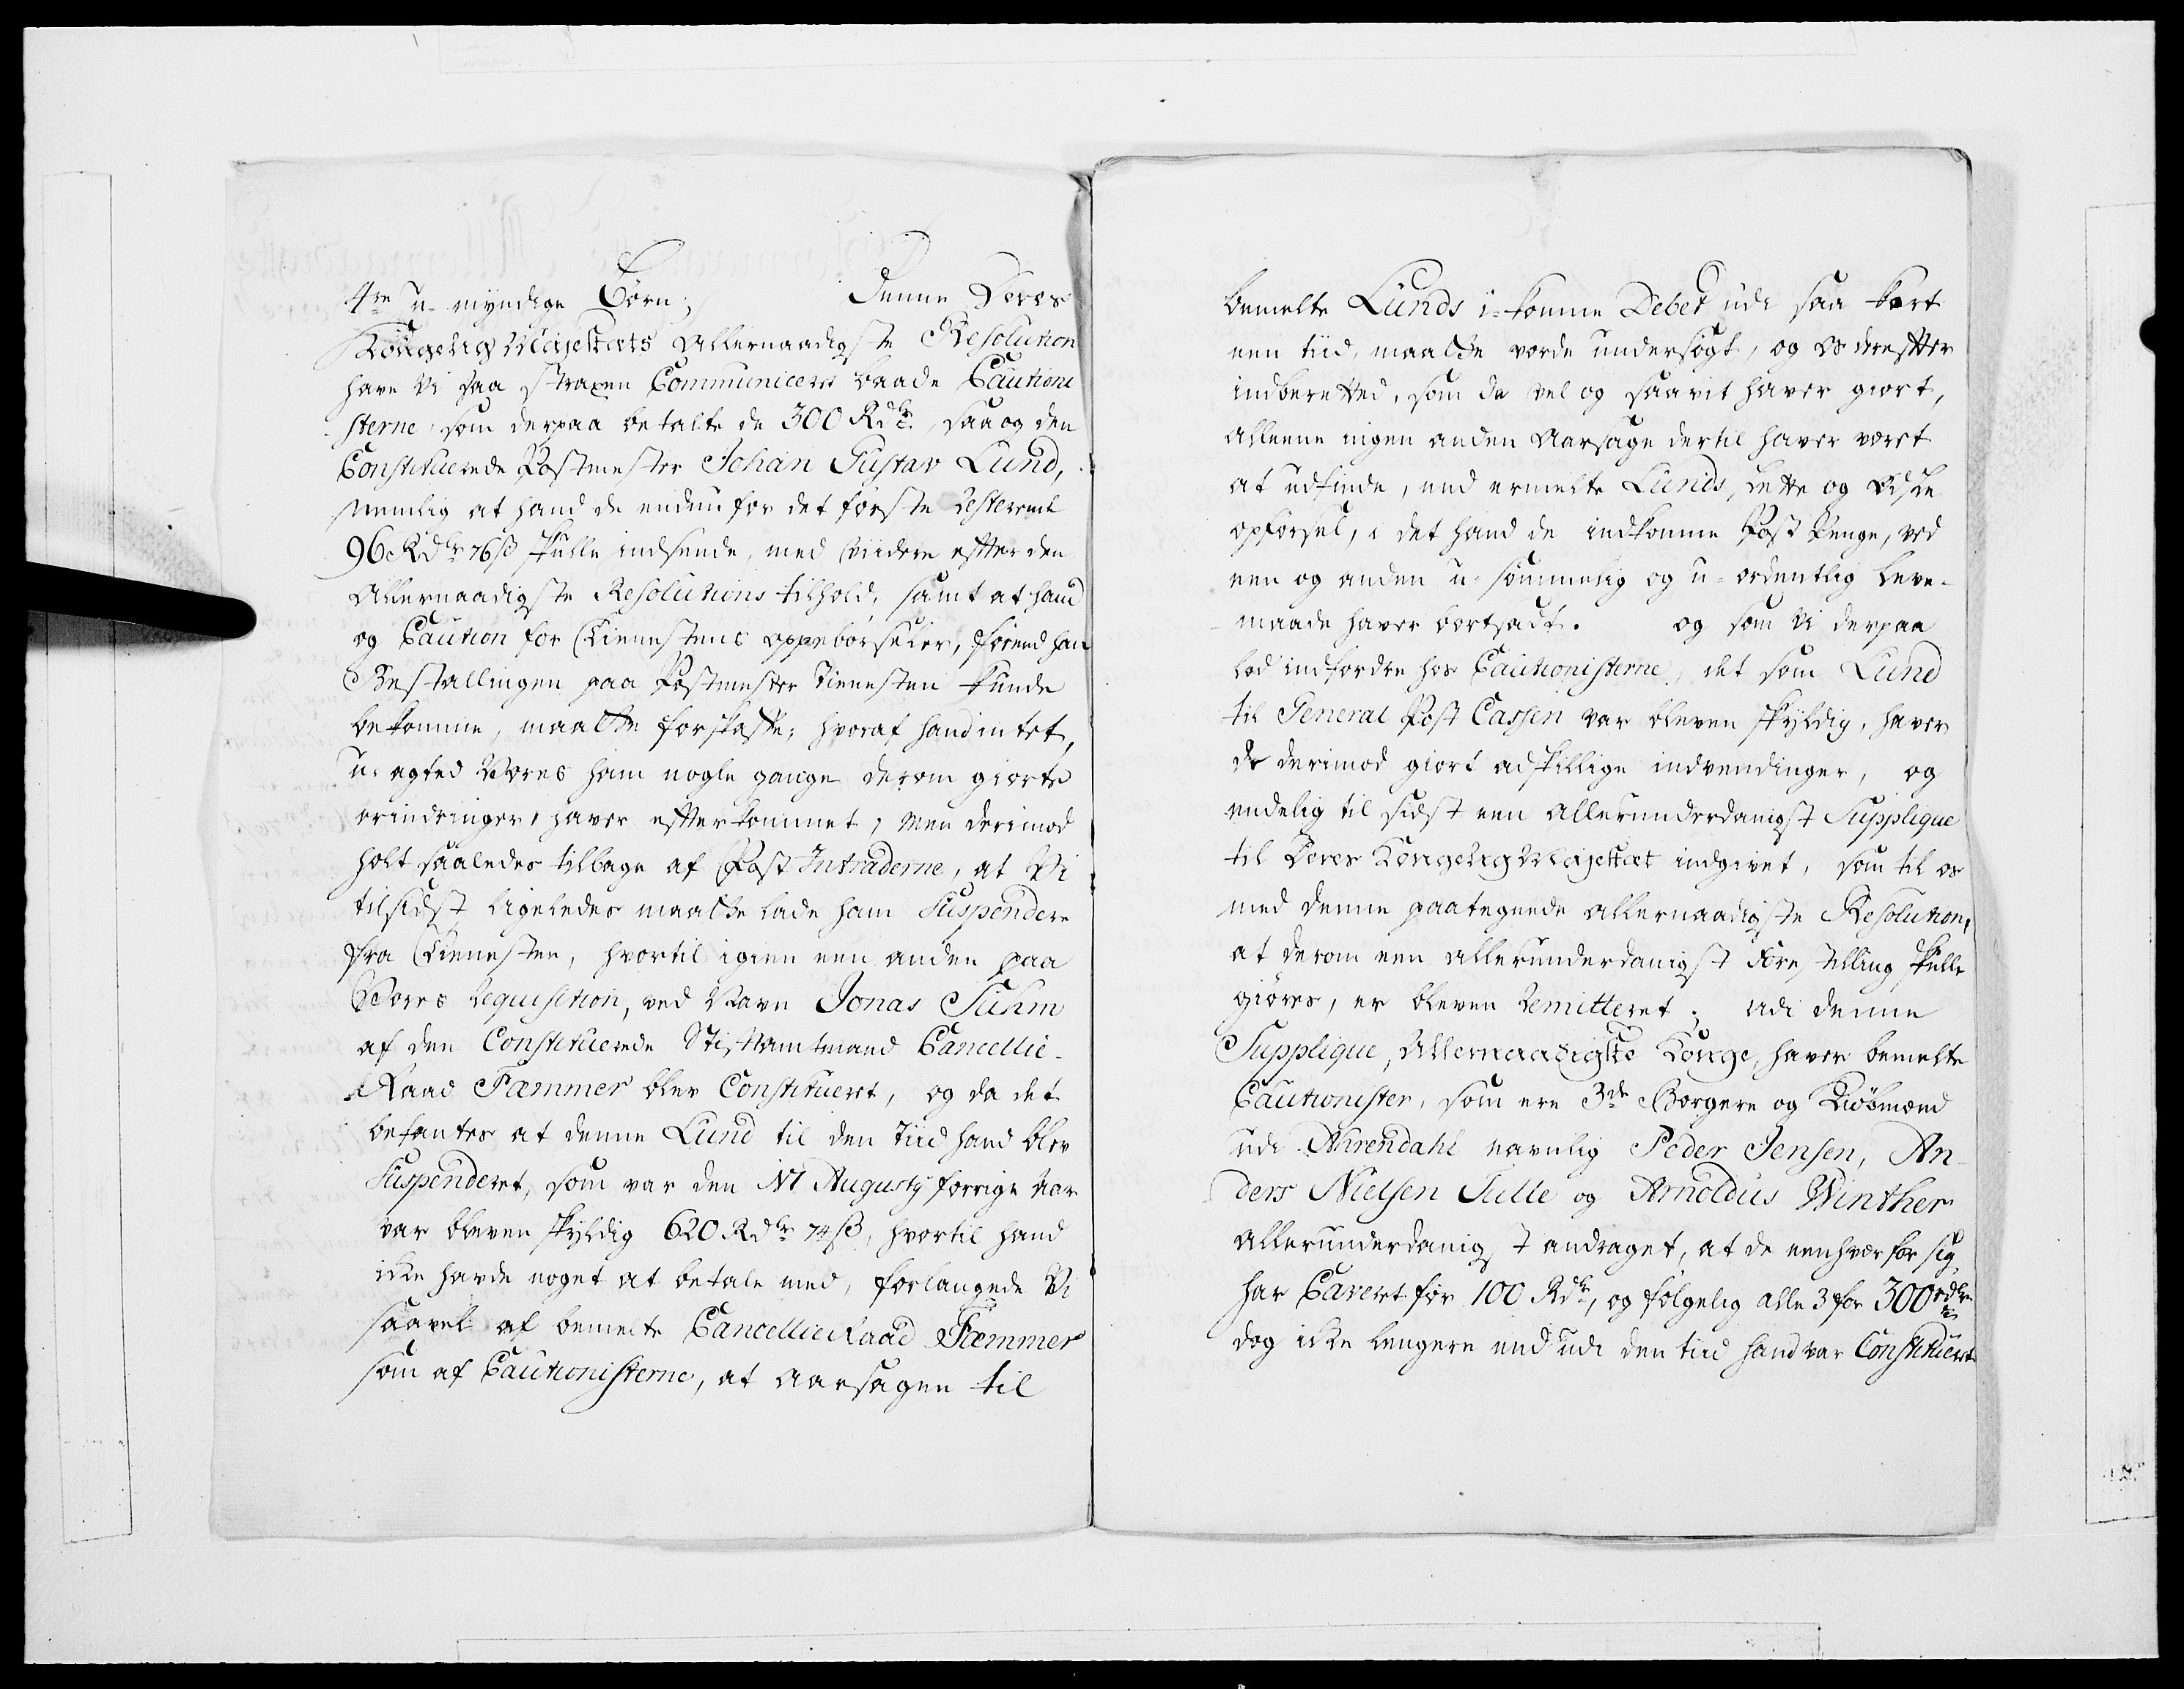 4re u-myndige Börn; Denne Deres
Kongelig Majestæts Allernaadigste Resolution
have Vi saa straxen Communiceret baade Cautioni
sterne, som derpaa betalte de 300 Rdlr, saa og den
Constituerede Postmester Johan Gustav Lund,
nemlig at hand de endnu for det første resterende
96 Rdlr 76 ß skulle indsende, med viidere efter den
Allernaadigste Resolutions tilhold, samt at hand
og Caution for Tienestens oppebørseler, førend han
Bestallingen paa Postmester Tienesten kunde
bekomme, maatte forskaffe; hvoraf hand intet,
u-agted Vores ham nogle gange derom giorte
erindringer, haver efterkommet, men derimod
holt saaledes tilbage af Post Intraderne, at Vi
tilsidst ligeledes maatte lade ham Suspendere
fra Tienesten, hvortil igien een anden paa
Vores Requisition, ved Navn Jonas Suhm
af den Constituerede Stiftamtmand Cancellie-
Raad Fæmmer blev Constitueret, og da det
befantes at denne Lund til den Tiid hand blev
Suspenderet, som var den Augustij forrige Aar
var bleven skyldig 620 Rdlr 74 ß, hvortil hand
icke havde noget at betale med, forlangede Vi
saavel af bemelte Cancellie Raad Fæmmer
som af Cautionisterne, at aarsagen til
bemelte Lunds i-komne Debet udi saa kort
een tiid, maatte vorde undersøgt, og os derefter
indberetted, som de vel og saavit haver giort,
alleene ingen anden Aarsage dertil haver været
at udfinde, end ermelte Lunds, lette og Ødsle
opførsel, i det hand de indkomne Post Penge, ved
een og anden u-sømmelig og u-ordentlig leve-
maade haver bortsadt. og som Vi derpaa
lod indfordre hos Cautionisterne, det som Lund
til General Post Cassen var bleven skyldig, haver
de derimod giort adskillige indvendinger, og
endelig til sidst een allerunderdanigst Supplique
til Deres Kongelig Majestæt indgivet, som til os
med denne paategnede allernaadigste Resolution,
at derom een allerunderdanigst Forestelling skulle
giøres, er bleven Remitteret; udi denne
Supplique, Allernaadigste Konge, haver bemelte
Cautionister, som ere 3de Borgere og Kiøbmænd
udi Ahrendahl navnlig Peder Jensen, An-
ders Nielsen Tulle og Arnoldus Winther
Allerunderdanigst andraget, at de eenhver for sig
har Caveret for 100 Rdlr, og følgelig alle 3 for 300 rdlr
dog icke lengere end udi den tiid hand var Constitueret